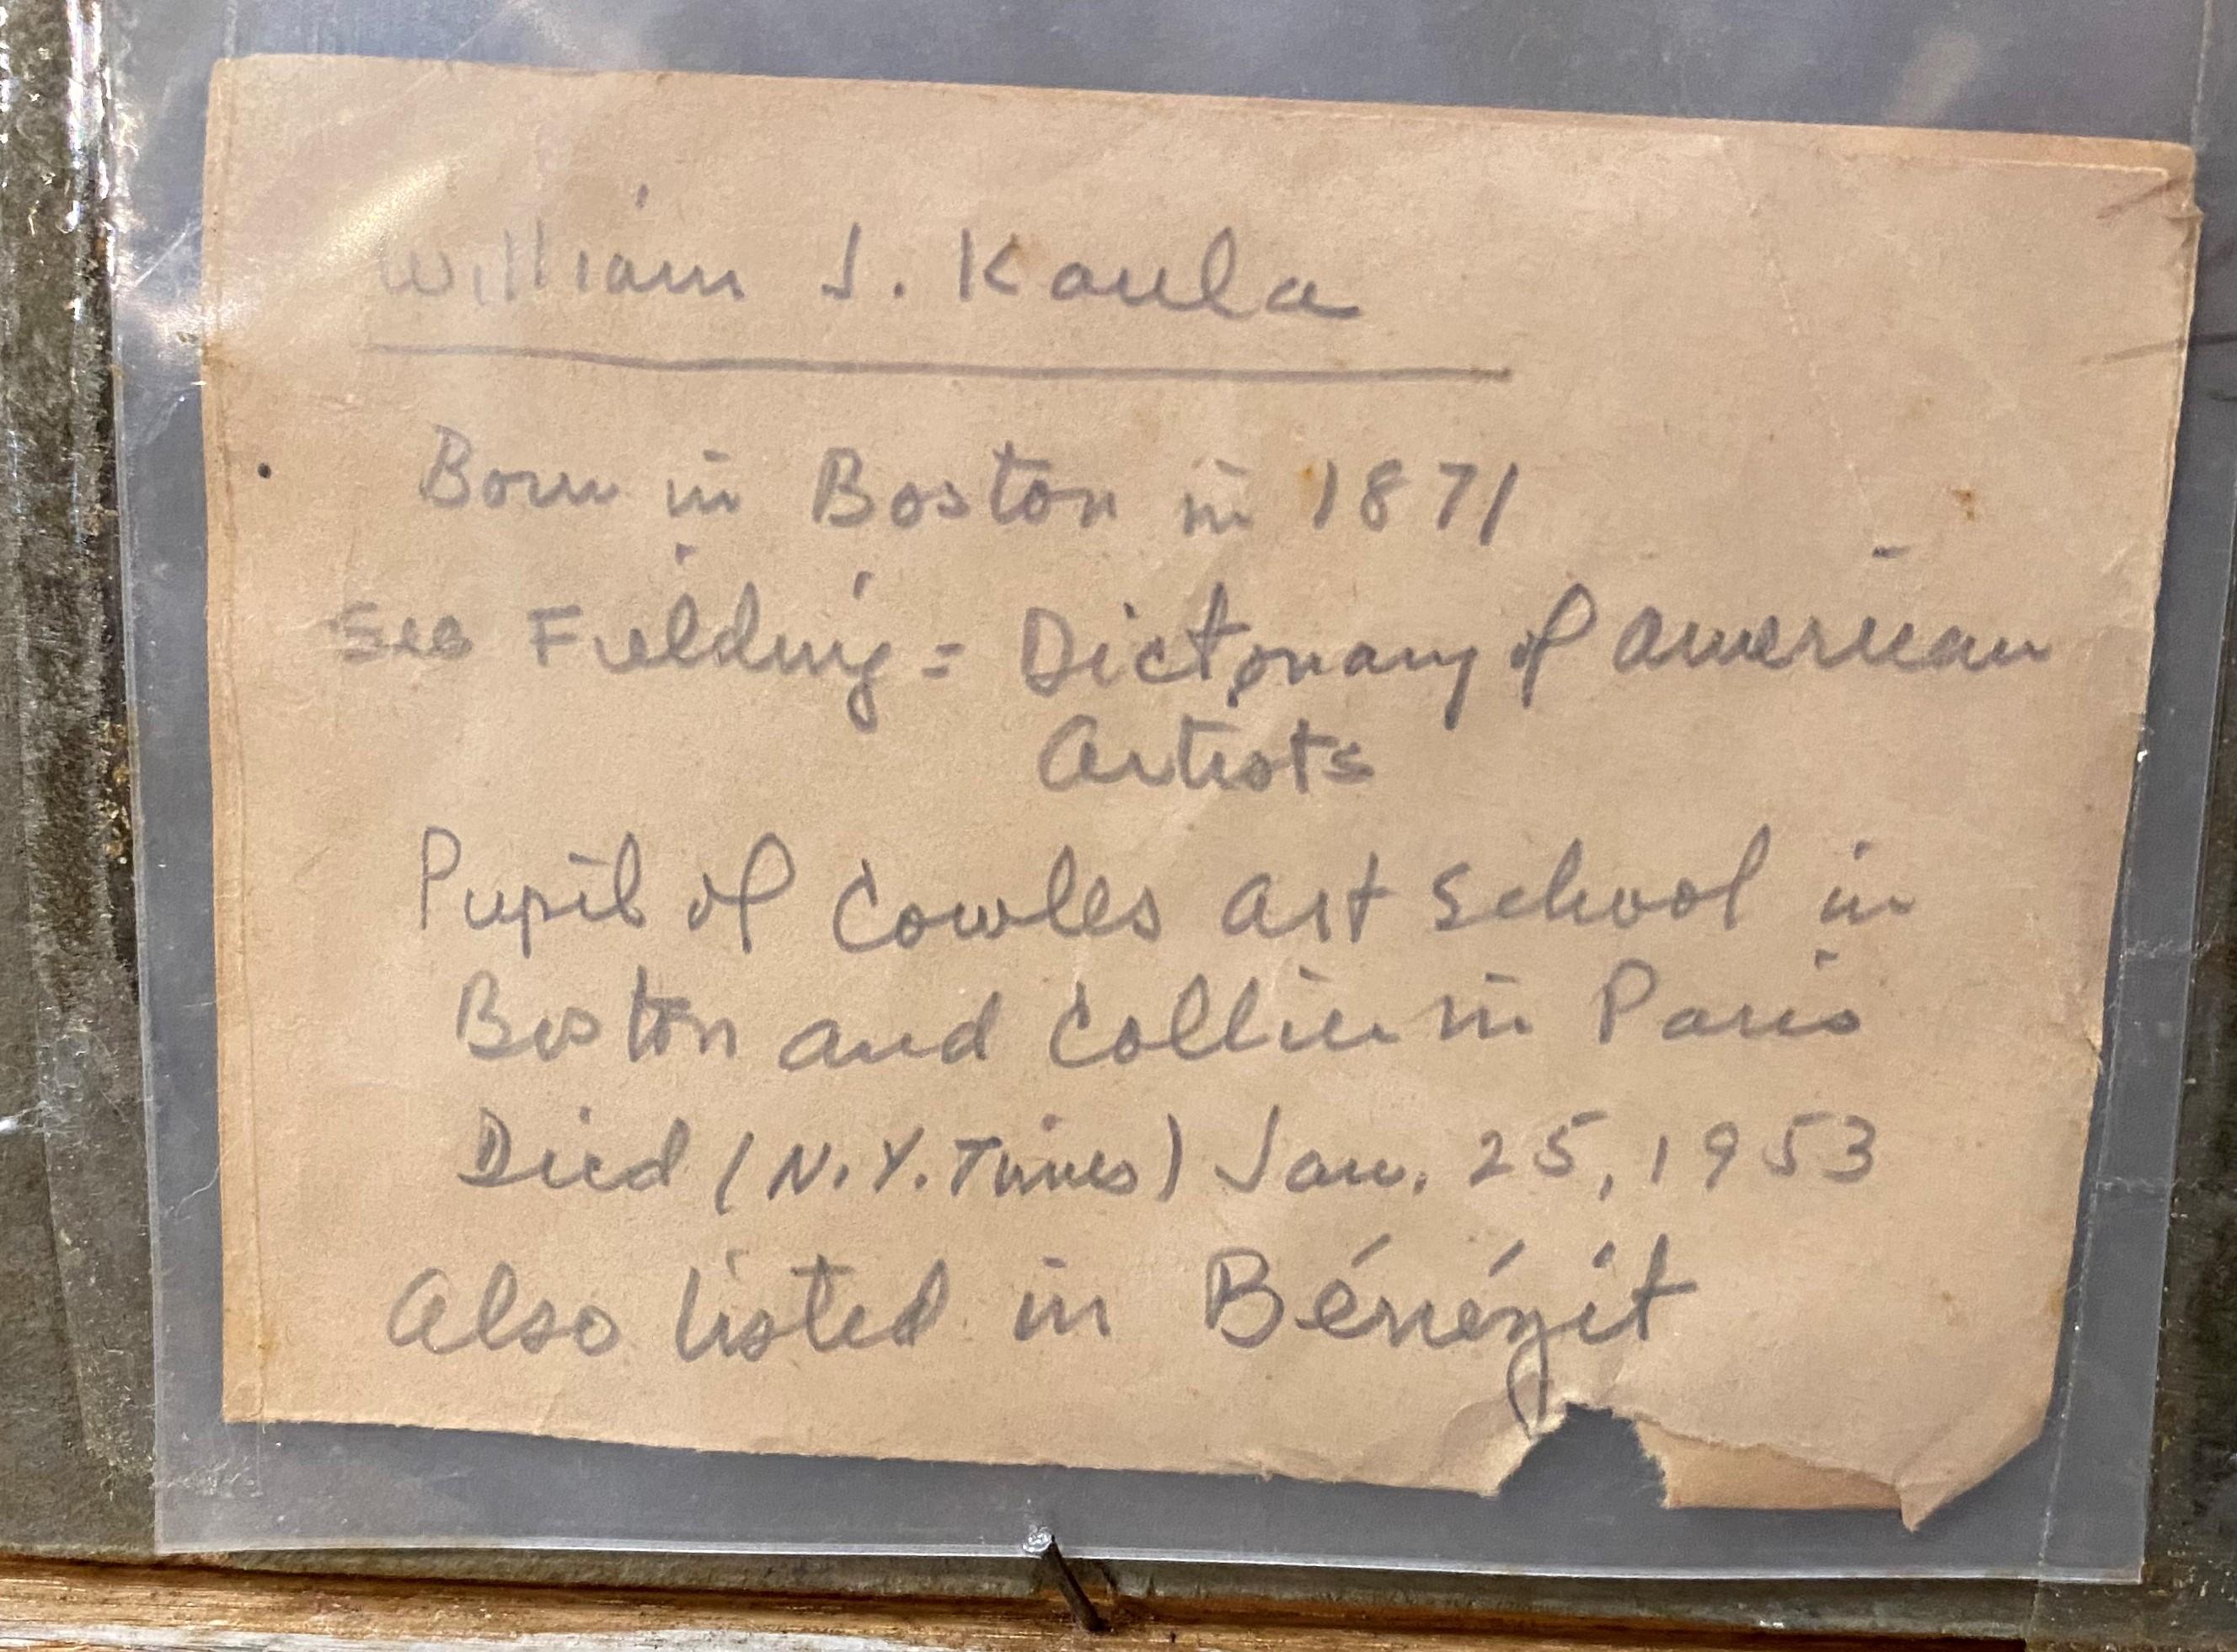 William J. Kaula
Born in Boston in 1871
See Fielding = Dictionary of American
Artists
Pupil of Cowles Art School in
Boston and Collin in Paris
Died (N.Y. Times) Jan. 25, 1953
Also listed in Bénézit